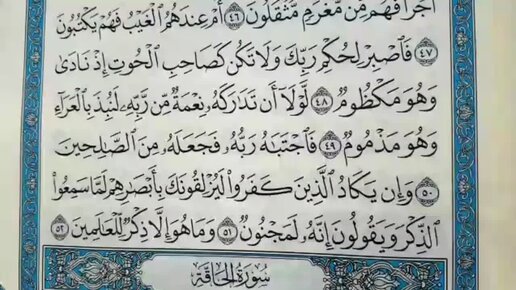 أَجْرًا فَهُم مِّن مَّغْرَمٍ مُّثْقَلُونَ ٤٦ أَمْ عِندَهُمُ ٱلْغَيْبُ فَهُمْ يَكْتُبُونَ
٤٧ فَٱصْبِرْ لِحُكْمِ رَبِّكَ وَلَا تَكُن كَصَاحِبِ ٱلْحُوتِ إِذْ نَادَىٰ
وَهُوَ مَكْظُومٌ ٤٨ لَّوْلَآ أَن تَدَٰرَكَهُۥ نِعْمَةٌ مِّن رَّبِّهِۦ لَنُبِذَ بِٱلْعَرَآءِ
وَهُوَ مَذْمُومٌ ٤٩ فَٱجْتَبَٰهُ رَبُّهُۥ فَجَعَلَهُۥ مِنَ ٱلصَّٰلِحِينَ
٥٠ وَإِن يَكَادُ ٱلَّذِينَ كَفَرُوا۟ لَيُزْلِقُونَكَ بِأَبْصَٰرِهِمْ لَمَّا سَمِعُوا۟
ٱلذِّكْرَ وَيَقُولُونَ إِنَّهُۥ لَمَجْنُونٌ ٥١ وَمَا هُوَ إِلَّا ذِكْرٌ لِّلْعَٰلَمِينَ ٥٢
سُورَةُ الْحَاقَّةِ